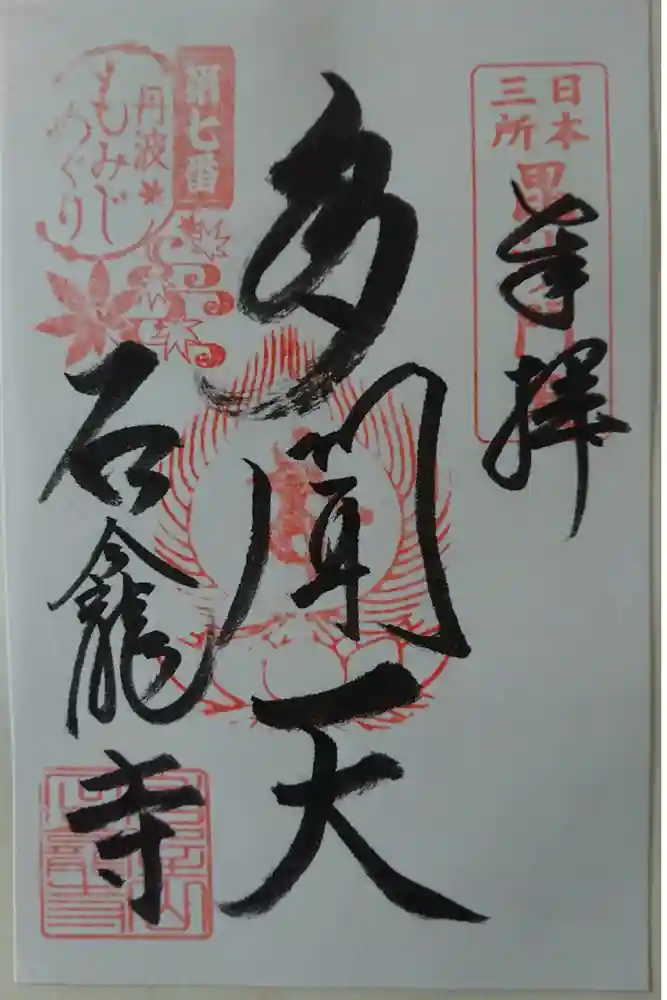 日本
三所
毘沙門
奉拝
多聞天
第七番
丹波
もみじ
めぐり
石龕寺